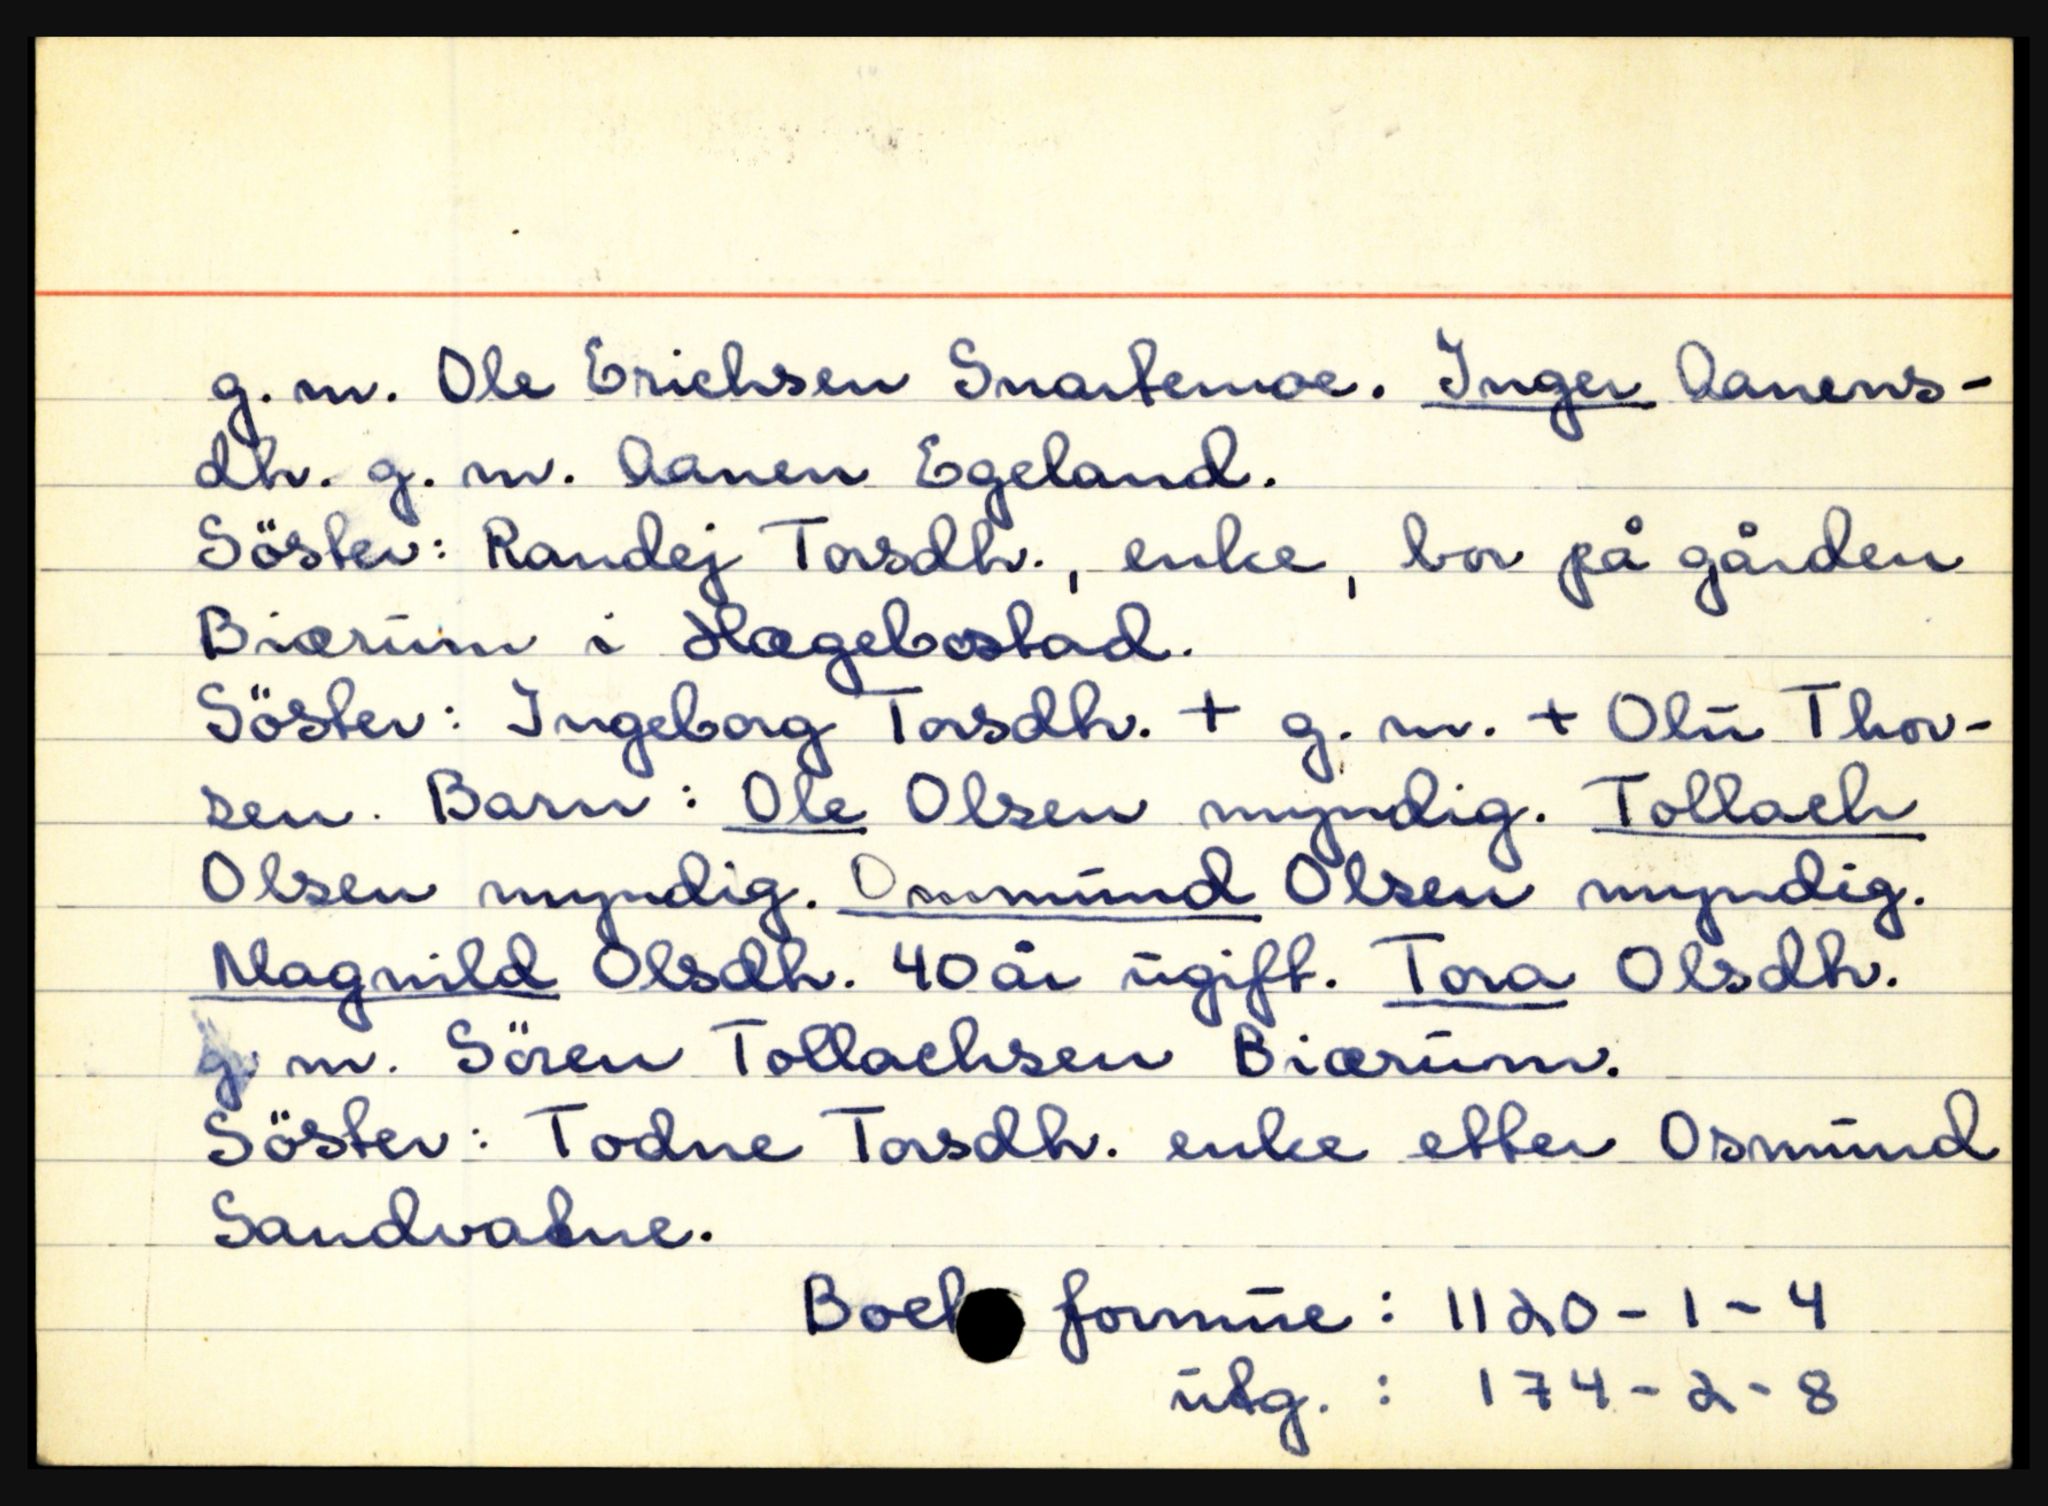 g. m. Ole Erichsen Snartemoe. Inger Aanens-
dh. g. m. Aanen Egeland.
Söster: Randej Torsdh., enke, bor på gården
Biærum i Hægebostad.
Söster: Ingeborg Torsdh. + g. m. + Olu Thor-
sen. Barn: Ole Olsen myndig. Tollach
Olsen myndig. Ommund Olsen myndig.
Magnild Olsdh. 40 år ugift. Tora Olsdh.
g. m. Sören Tollachsen Biærum.
Söster: Todne Torsdh. enke etter Osmund
Sandvatne.
Boets formue: 1120-1-4
utg.: 174-2-8